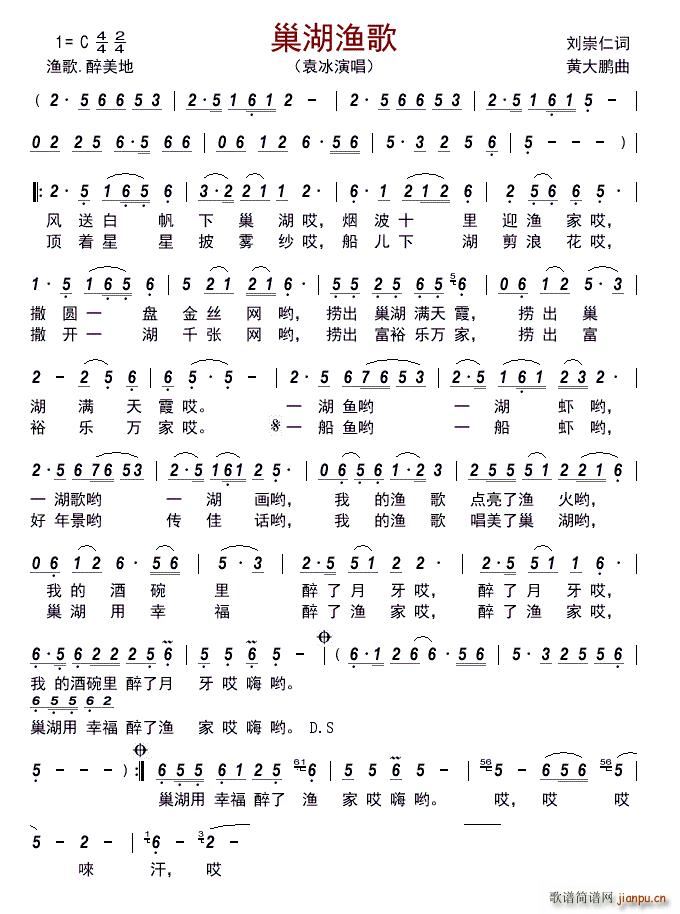 巢湖渔歌
1= C 4/4 2/4
刘崇仁词
渔歌.醉美地
（袁冰演唱）
黄大鹏曲
( 2·5 6 6 5 3 | 2·5 1 6 1 2· | 2·5 6 6 5 3 | 2·5 1 6 1 2· |
0 2 2 5 6·5 6 6 | 0 6 1 2 6·5 6 | 5·3 2 5 6 | 5 - - ) |
|: 2· 5 1 6 5 6 | 3·2 2 1 1 2· | 6· 1 2 1 2 6 | 2 5 6 6 5· |
风 送 白 帆 下 巢 湖 哎， 烟 波 十 里 迎 渔 家 哎，
顶 着 星 星 披 雾 纱 哎， 船 儿 下 湖 剪 浪 花 哎，
1· 5 1 6 5 6 | 5 2 1 2 1 6· | 5 5 2 5 6 5 5 6 | 0 6 1 2 5·3 |
撒 圆 一 盘 金 丝 网 哟， 捞 出 巢 湖 满 天 霞， 捞 出 巢
撒 开 一 湖 千 张 网 哟， 捞 出 富 裕 乐 万 家， 捞 出 富
2 - 2 5 | 6 6·5 5 - | 2·5 6 7 6 5 3 | 2·5 1 6 1 2· |
湖 满 天 霞 哎。 一 湖 鱼 哟 一 湖 虾 哟，
裕 乐 万 家 哎。 𝄋 一 船 鱼 哟 一 船 虾 哟，
2·5 6 7 6 5 3 | 2·5 1 6 1 2· | 0 6 5 6 1 2· | 2 5 5 5 1 2 2 1 6 |
一 湖 歌 哟 一 湖 画 哟， 我 的 渔 歌 点 亮 了 渔 火 哟，
好 年 景 哟 传 佳 话 哟， 我 的 渔 歌 唱 美 了 巢 湖 哟，
0 6 1 2 6·5 6 | 5·3 2 - | 2·5 5 1 2· | 2·5 5 1 6· |
我 的 酒 碗 里 醉 了 月 牙 哎， 醉 了 月 牙 哎，
巢 湖 用 幸 福 醉 了 渔 家 哎， 醉 了 渔 家 哎，
6·5 6 2 2 2 5 6 | 2·5 5 - | ( 6·1 2 6 6 6 5· | 5·3 5 5 5 5 6 |
我 的 酒 碗 里 醉 了 月 牙 哎 嗨 哟。
6 5 5 6 2
巢湖用 幸福 醉了渔 家 哎 嗨 哟。 D.S
5 - - - ) :| 6 5 5 6 1 2 5 61 6 | 5 5 6 5 - | 56 5 - 5 6 6 | 56 5 - - - |
巢湖用 幸福 醉了 渔 家 哎 嗨 哟。 哎， 哎 哎
5 - 2 - | 1 6· 3 2 - | 2 - - - ‖
唻 汗， 哎
歌谱简谱网
jianpu.cn